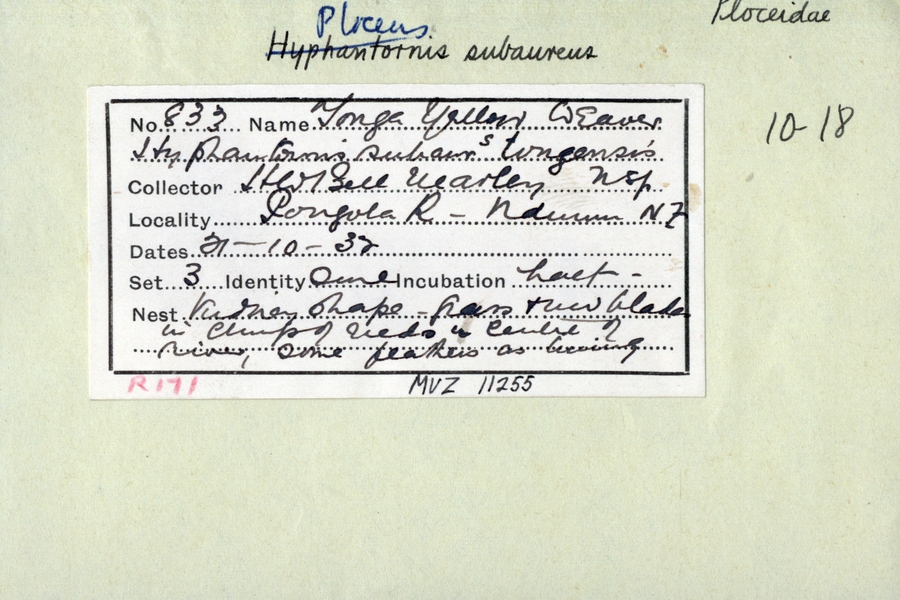 Ploceidae
Ploceus
Hyphantornis subaureus
10-18
No. 833 Name Tonga Yellow Weaver
Hyphantornis subaurs tongensis
Collector H W Bell Marley NSP.
Locality Pongola R - Ndumu N.Z
Dates 21-10-32
Set 3 Identity Sure Incubation half -
Nest Kidney shape - grass + blades
in clump of reeds in centre of
river, some feathers as lining
R171
MVZ 11255